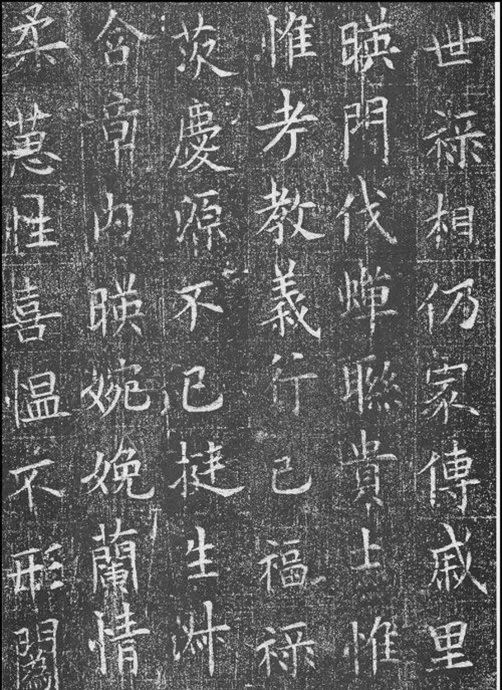 世祿相仍家傳戚里
暎門伐蟬聯貴士惟
惟考教義行己福祿
茨慶源不已挺生淑
含章内暎婉娩蘭情
柔蕙性喜愠不形